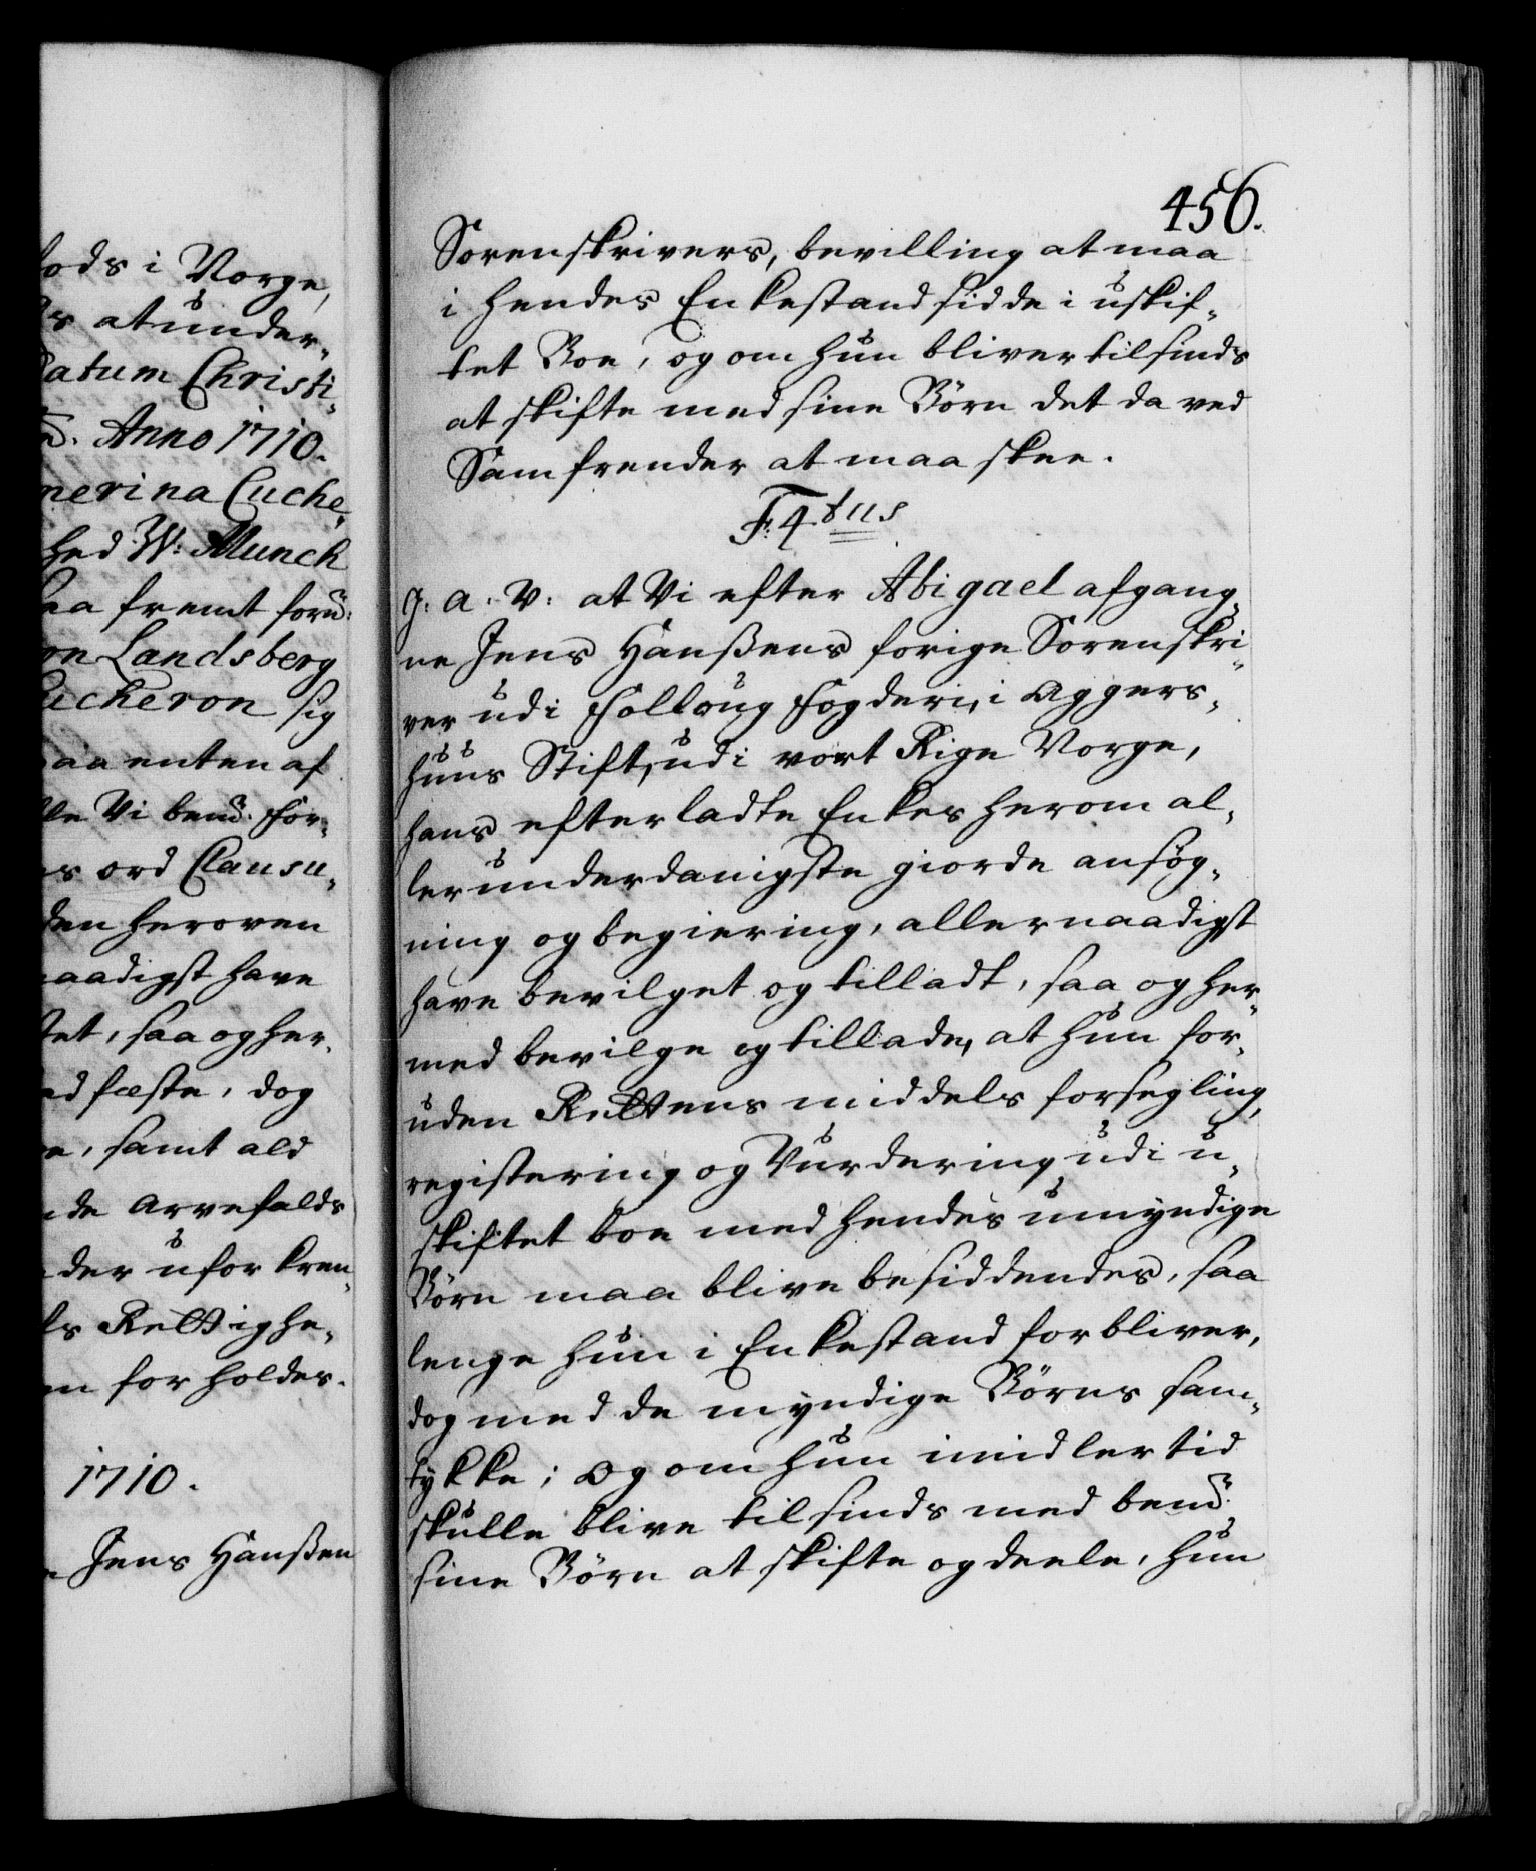 fods i Norge,
s at under-
Datum Christi-
Anno 1710.
merina Cuche-
hed W: Munch
saa fremt forñ:
on Landsberg
ucheron sig
aa enten af
lle Vi benñ: for-
s ord Clausu-
den heroven
naadigst have
tet, saa og her-
d fæste, dog
e, samt ald
de Arvefalds
der uforkren-
s Rettighe-
m forholdes.
1710.
Jens Hanßen
456.
Sorenskrivers, bevilling at maa
i hendes Enkestand sidde i uskif-
tet Boe, og om hun bliver tilsinds
at skifte med sine Börn det da ved
Samfrender at maa skee.
F: 4tus
G: A: V: at Vi efter Abigael afgang-
ne Jens Hanßens forige Sorenskri-
ver udi Folloug fogderi, i Aggers-
huus Stift, udi vort Rige Norge,
hans efterladte Enkes herom al-
lerunderdanigste giorde ansøg-
ning og begiering, allernaadigst
have bevilget og tilladt, saa og her-
med bevilge og tillade, at hun for-
uden Rettens middels forsegling,
registering og Vurdering udi u-
skiftet boe med hendes umyndige
Börn maa blive besiddendes, saa
lenge hun i Enkestand forbliver,
dog med de myndige Börns sam-
tykke; Og om hun imidlertid
skulle blive tilsinds med benñ:
sine Börn at skifte og deele, hun